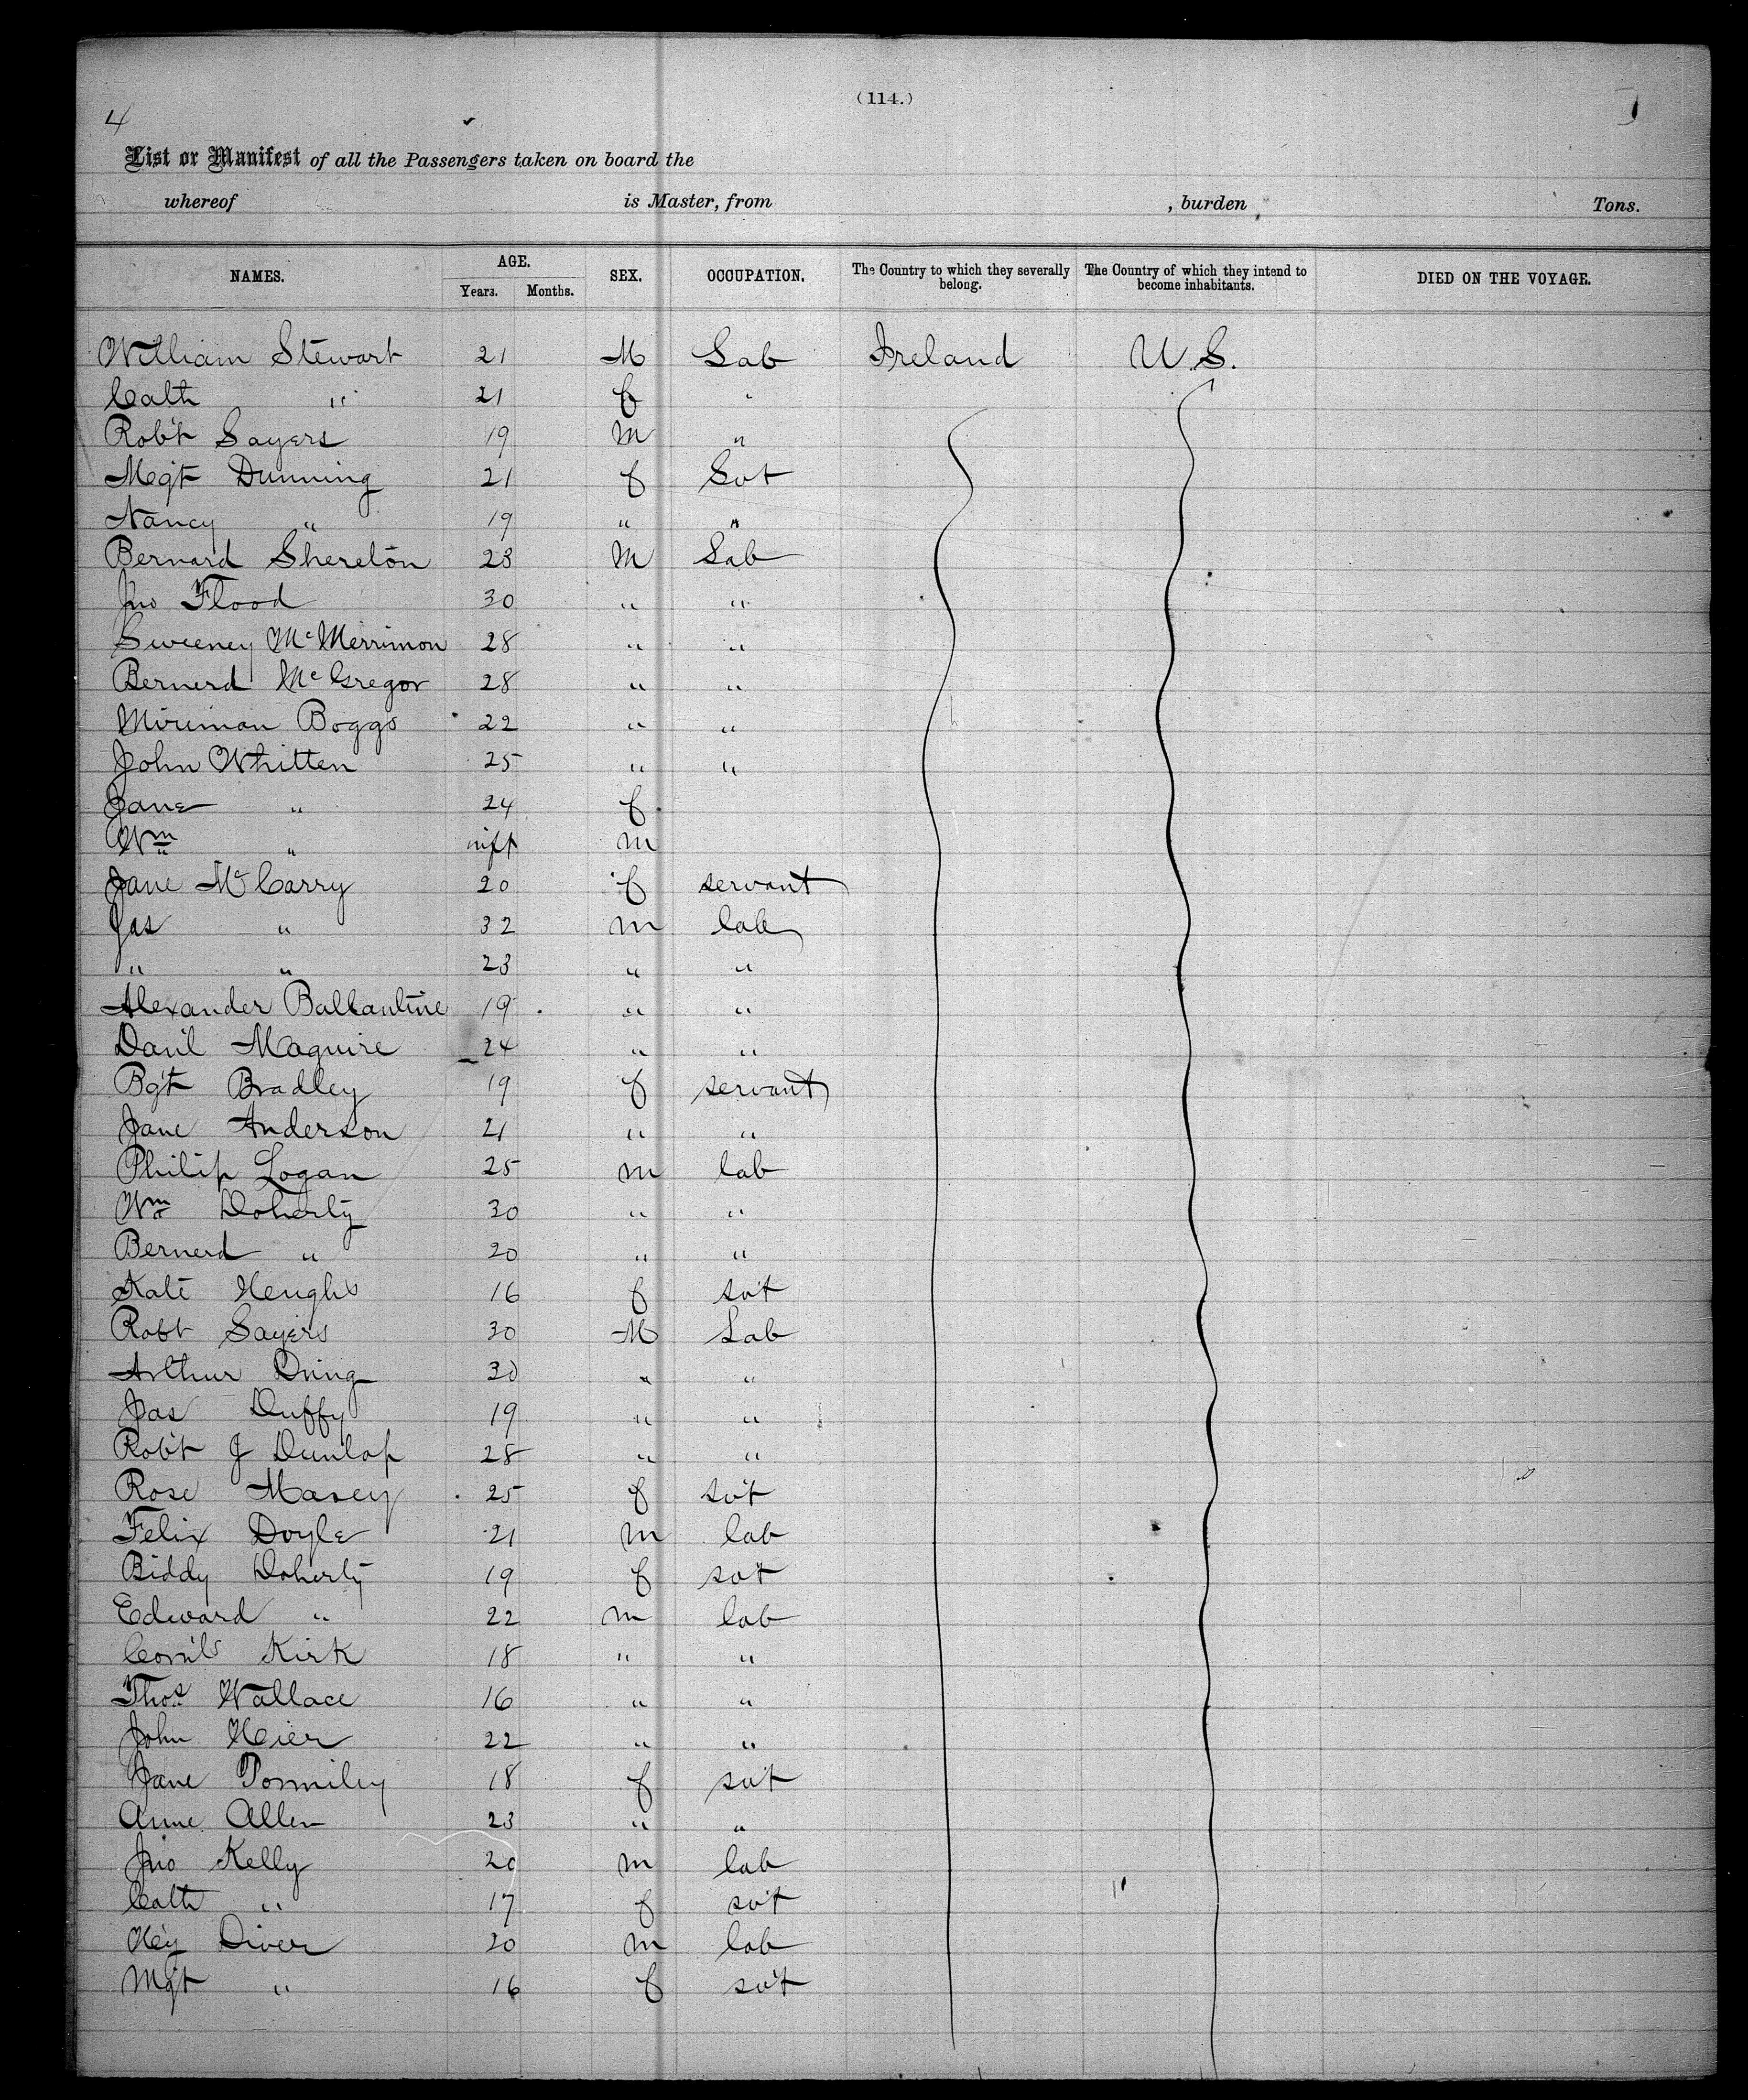 (114.)
4
List or Manifest of all the Passengers taken on board the
whereof is Master, from , burden Tons.
NAMES. AGE. SEX. OCCUPATION. The Country to which they severally belong. The Country of which they intend to become inhabitants. DIED ON THE VOYAGE.
Years. Months.
William Stewart 21 M Lab Ireland U.S.
Cath " 21 f "
Robt Sayers 19 m "
Mgt Dunning 21 f Svt
Nancy " 19 " "
Bernard Shereton 23 M Lab
Jno Flood 30 " "
Sweeney McMerrimon 28 " "
Bernerd McGregor 28 " "
Miriman Boggs 22 " "
John Whitten 25 " "
Jane " 24 f
Wm " inft m
Jane McCarry 20 f servant
Jas " 32 m lab
" " 23 " "
Alexander Ballantine 19 " "
Danl Maguire 24 " "
Bgt Bradley 19 f servant
Jane Anderson 21 " "
Philip Logan 25 m lab
Wm Doherty 30 " "
Bernerd " 20 " "
Kate 16 f svt
Robt Sayers 30 M Lab
Arthur 30 " "
Jas Duffy 19 " "
Robt J Dunlop 28 " "
Rose 25 f svt
Felix Doyle 21 m lab
Biddy Doherty 19 f svt
Edward " 22 m lab
Kirk 18 " "
Thos Wallace 16 " "
John 22 " "
Jane 18 f svt
Anne Allen 23 " "
Jno Kelly 20 m lab
Cath " 17 f svt
Diver 20 m lab
Mgt " 16 f svt